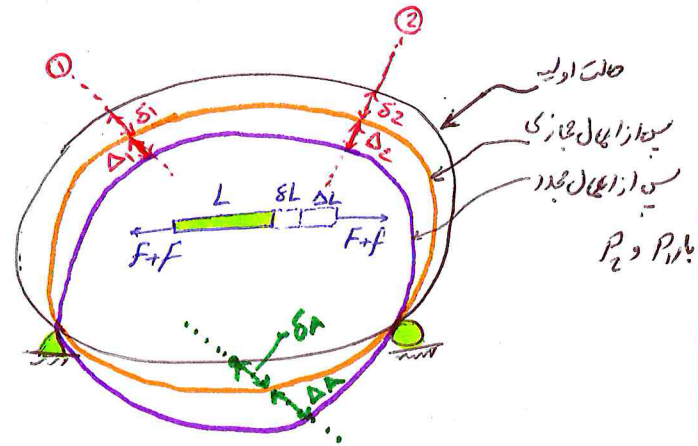 ①
②
δ1
Δ1
δ2
Δ2
حالت اولیه
پس از اعمال مجازی
پس از اعمال مجدد
بار P1 و P2
L
δL
ΔL
F+f
F+f
δA
ΔA